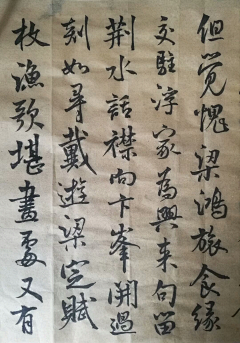 但覺愧梁鴻旅食緣
交駐浮家為興来句留
荆水話襟向卞峯開過
剡如尋戴遊梁定賦
枚漁歌堪畫處又有